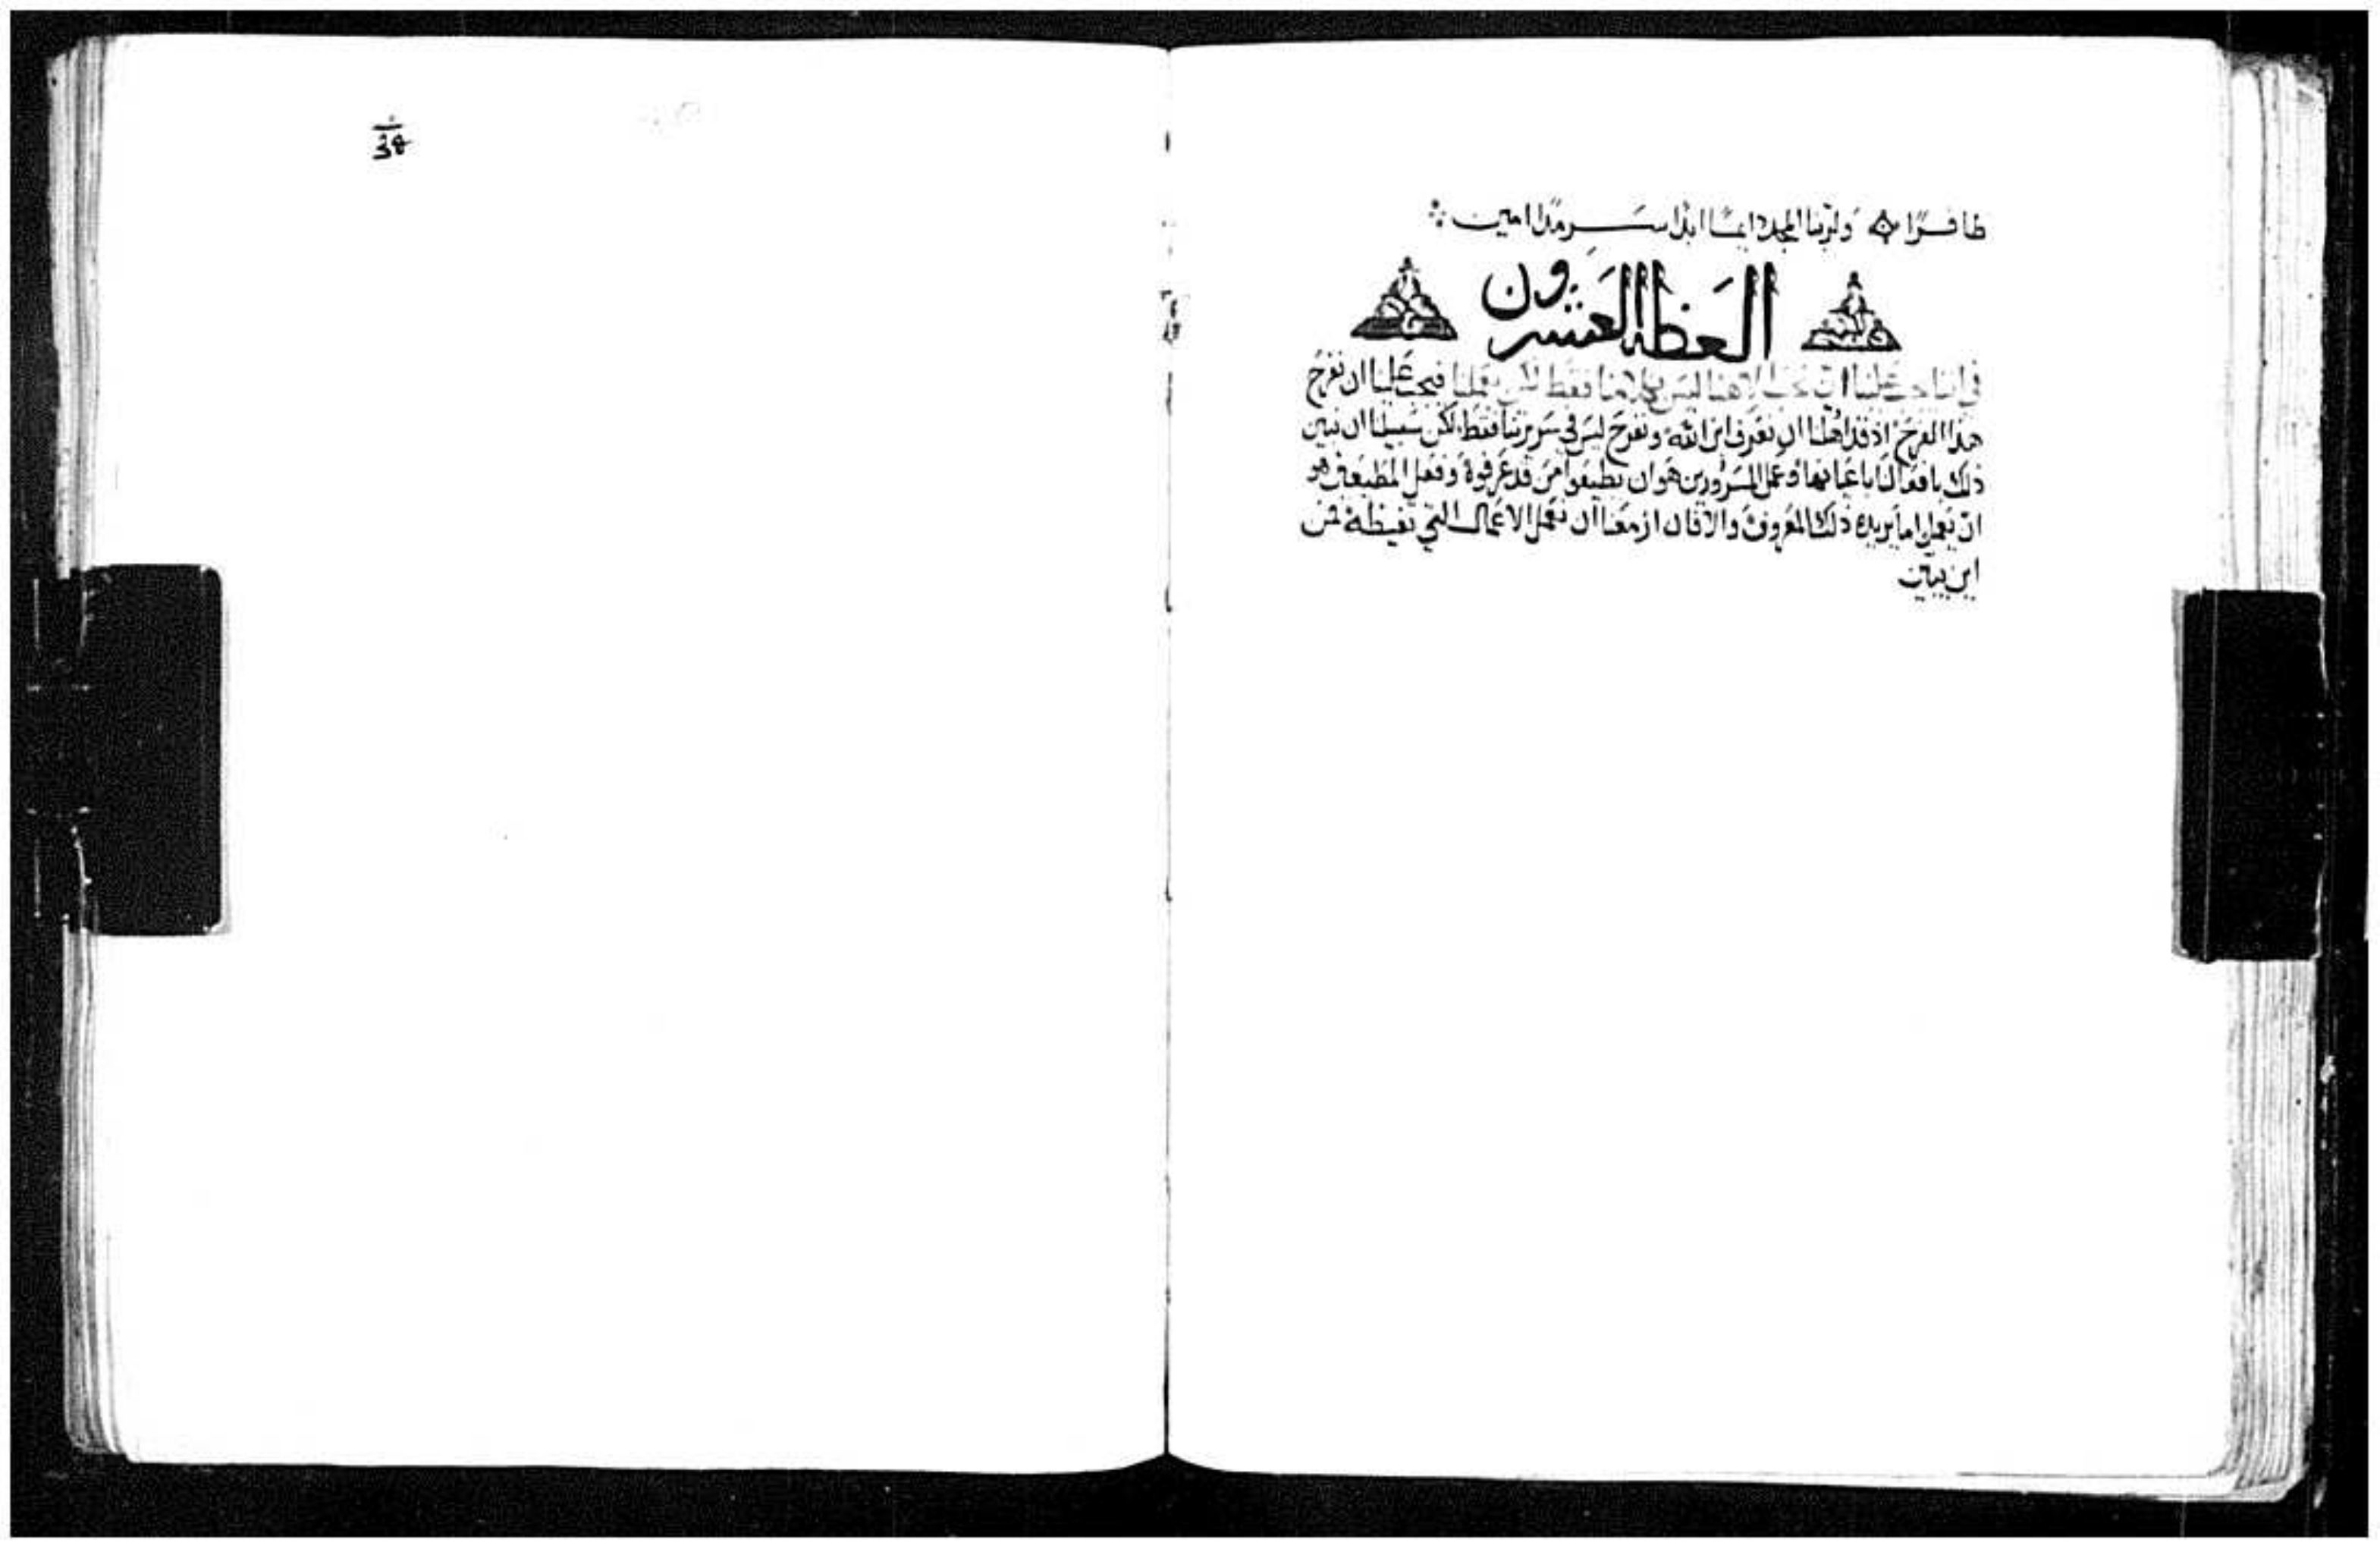 ظافرًا ولربنا المجد دايمًا ابدًا سرمدًا امين
العظة العشرون
في اننا يجب علينا ان نحب الاهنا ليس بكلامنا فقط لكن بعملنا فيجب علينا ان نفرح
هذا الفرح اذ قد اهلنا ان نعرف ابن الله ونفرح ليس في سريرتنا فقط لكن سبيلنا ان نبين
ذلك بافعالنا باعيانها وعمل المسرورين هو ان يطيعوا من قد عرفوه وفعل المطيعين هو
ان يعملوا ما يريده ذلك المعروف والا فان ازمعنا ان نعمل الاعمال التي تغيظه فمن
اين يبين
38